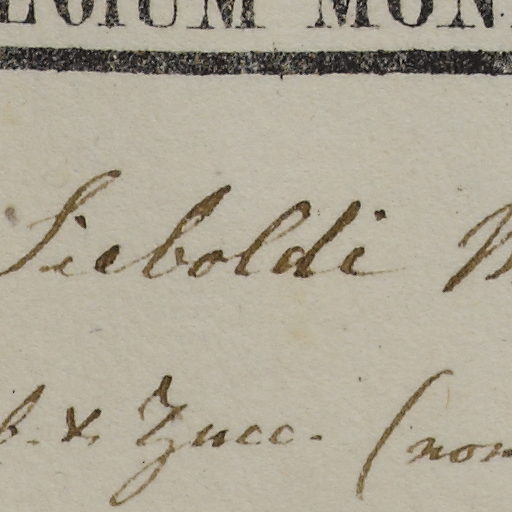 EGIUM MON
Sieboldi
b. & Zucc. (non